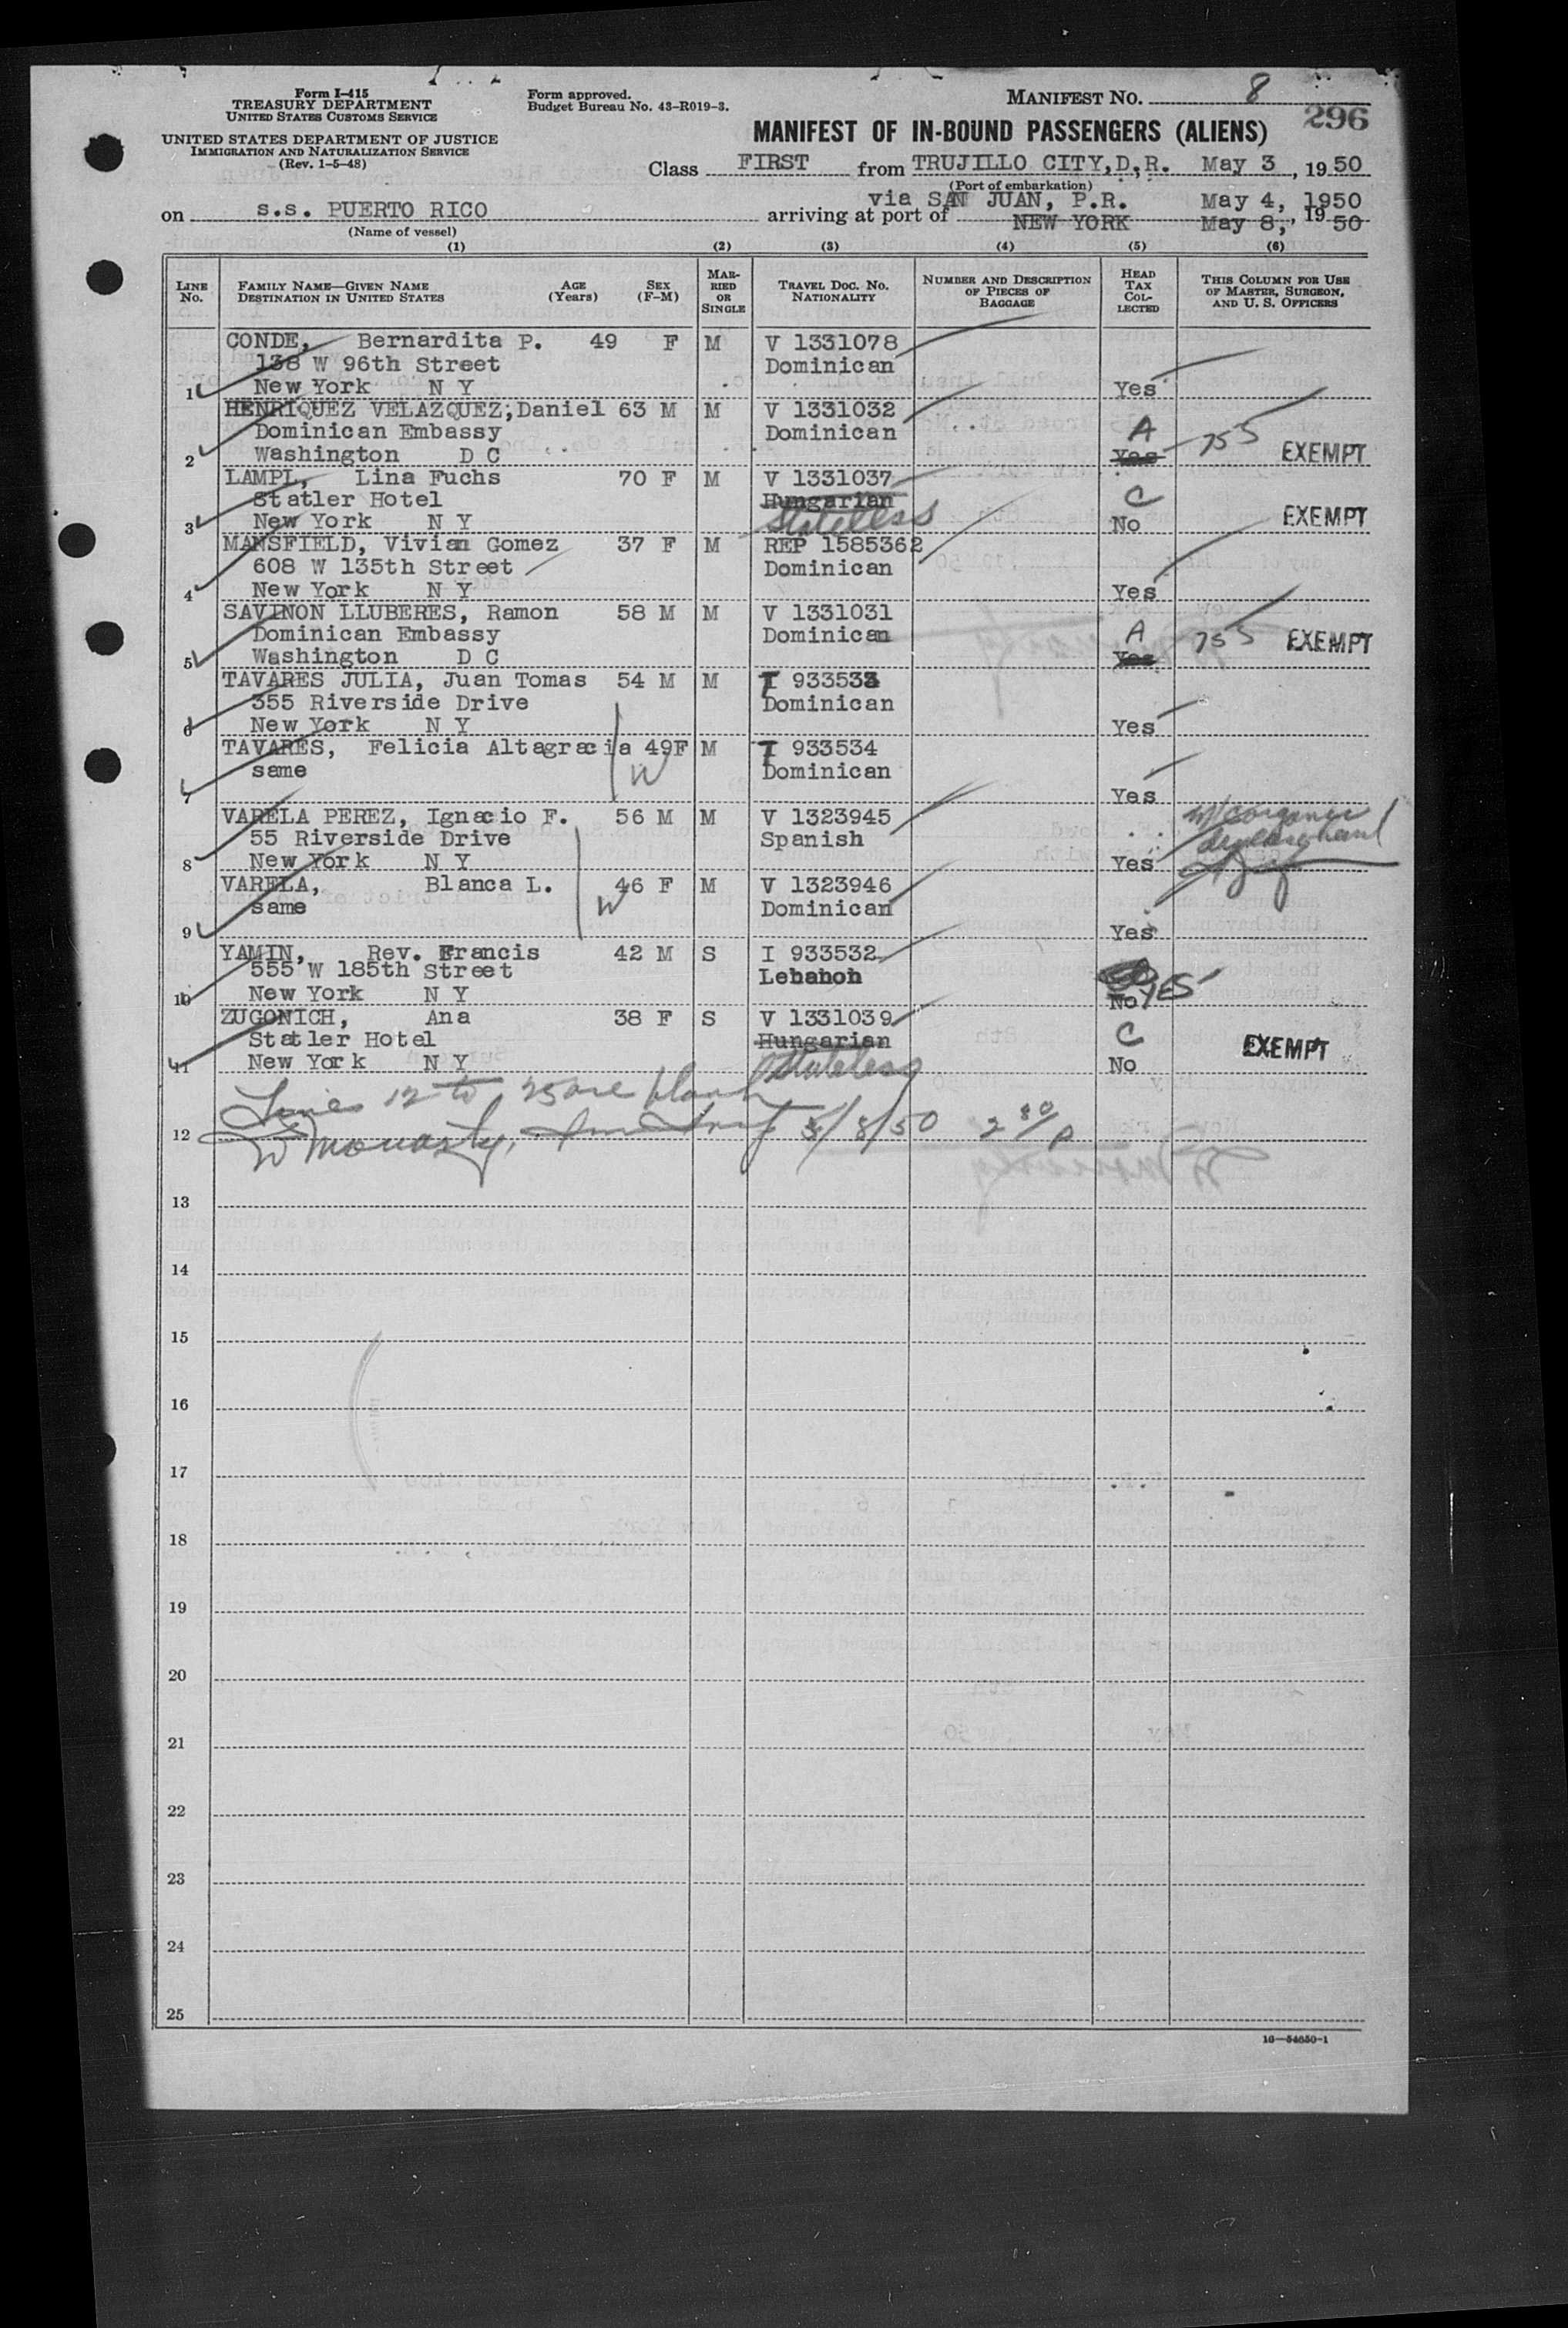 Form I-415
TREASURY DEPARTMENT
UNITED STATES CUSTOMS SERVICE
UNITED STATES DEPARTMENT OF JUSTICE
IMMIGRATION AND NATURALIZATION SERVICE
(Rev. 1-5-48)
Form approved.
Budget Bureau No. 43-R019-3.
MANIFEST NO. 8
296
MANIFEST OF IN-BOUND PASSENGERS (ALIENS)
Class FIRST from TRUJILLO CITY,D.R. May 3, 1950
(Port of embarkation)
via SAN JUAN, P.R. May 4, 1950
on s.s. PUERTO RICO arriving at port of NEW YORK May 8, 1950
(Name of vessel)
(1) (2) (3) (4) (5) (6)
LINE NO.
FAMILY NAME—GIVEN NAME
DESTINATION IN UNITED STATES
AGE (Years)
SEX (F-M)
MARRIED OR SINGLE
TRAVEL DOC. NO.
NATIONALITY
NUMBER AND DESCRIPTION OF PIECES OF BAGGAGE
HEAD TAX COLLECTED
THIS COLUMN FOR USE OF MASTER, SURGEON, AND U. S. OFFICERS
CONDE, Bernardita P. 49 F M V 1331078
138 W 96th Street Dominican
1 New York N Y Yes
HENRIQUEZ VELAZQUEZ;Daniel 63 M M V 1331032
Dominican Embassy Dominican A
2 Washington D C Yes 755 EXEMPT
LAMPL, Lina Fuchs 70 F M V 1331037
Statler Hotel Hungarian C
3 New York N Y Stateless No EXEMPT
MANSFIELD, Vivian Gomez 37 F M REP 1585362
608 W 135th Street Dominican
4 New York N Y Yes
SAVINON LLUBERES, Ramon 58 M M V 1331031
Dominican Embassy Dominican A 755 EXEMPT
5 Washington D C Yes
TAVARES JULIA, Juan Tomas 54 M M I 933533
355 Riverside Drive Dominican
6 New York N Y Yes
TAVARES, Felicia Altagracia 49F M I 933534
same W Dominican
7 Yes
VARELA PEREZ, Ignacio F. 56 M M V 1323945
55 Riverside Drive Spanish
8 New York N Y Yes
VARELA, Blanca L. 46 F M V 1323946
same W Dominican
9 Yes
YAMIN, Rev. Francis 42 M S I 933532
555 W 185th Street Lebanon
10 New York N Y No YES
ZUGONICH, Ana 38 F S V 1331039
Statler Hotel Hungarian C EXEMPT
11 New York N Y Stateless No
Lines 12 to 25 are blank
12 W Monasty, 5/8/50 2 30/p
13
14
15
16
17
18
19
20
21
22
23
24
25
16—54650-1